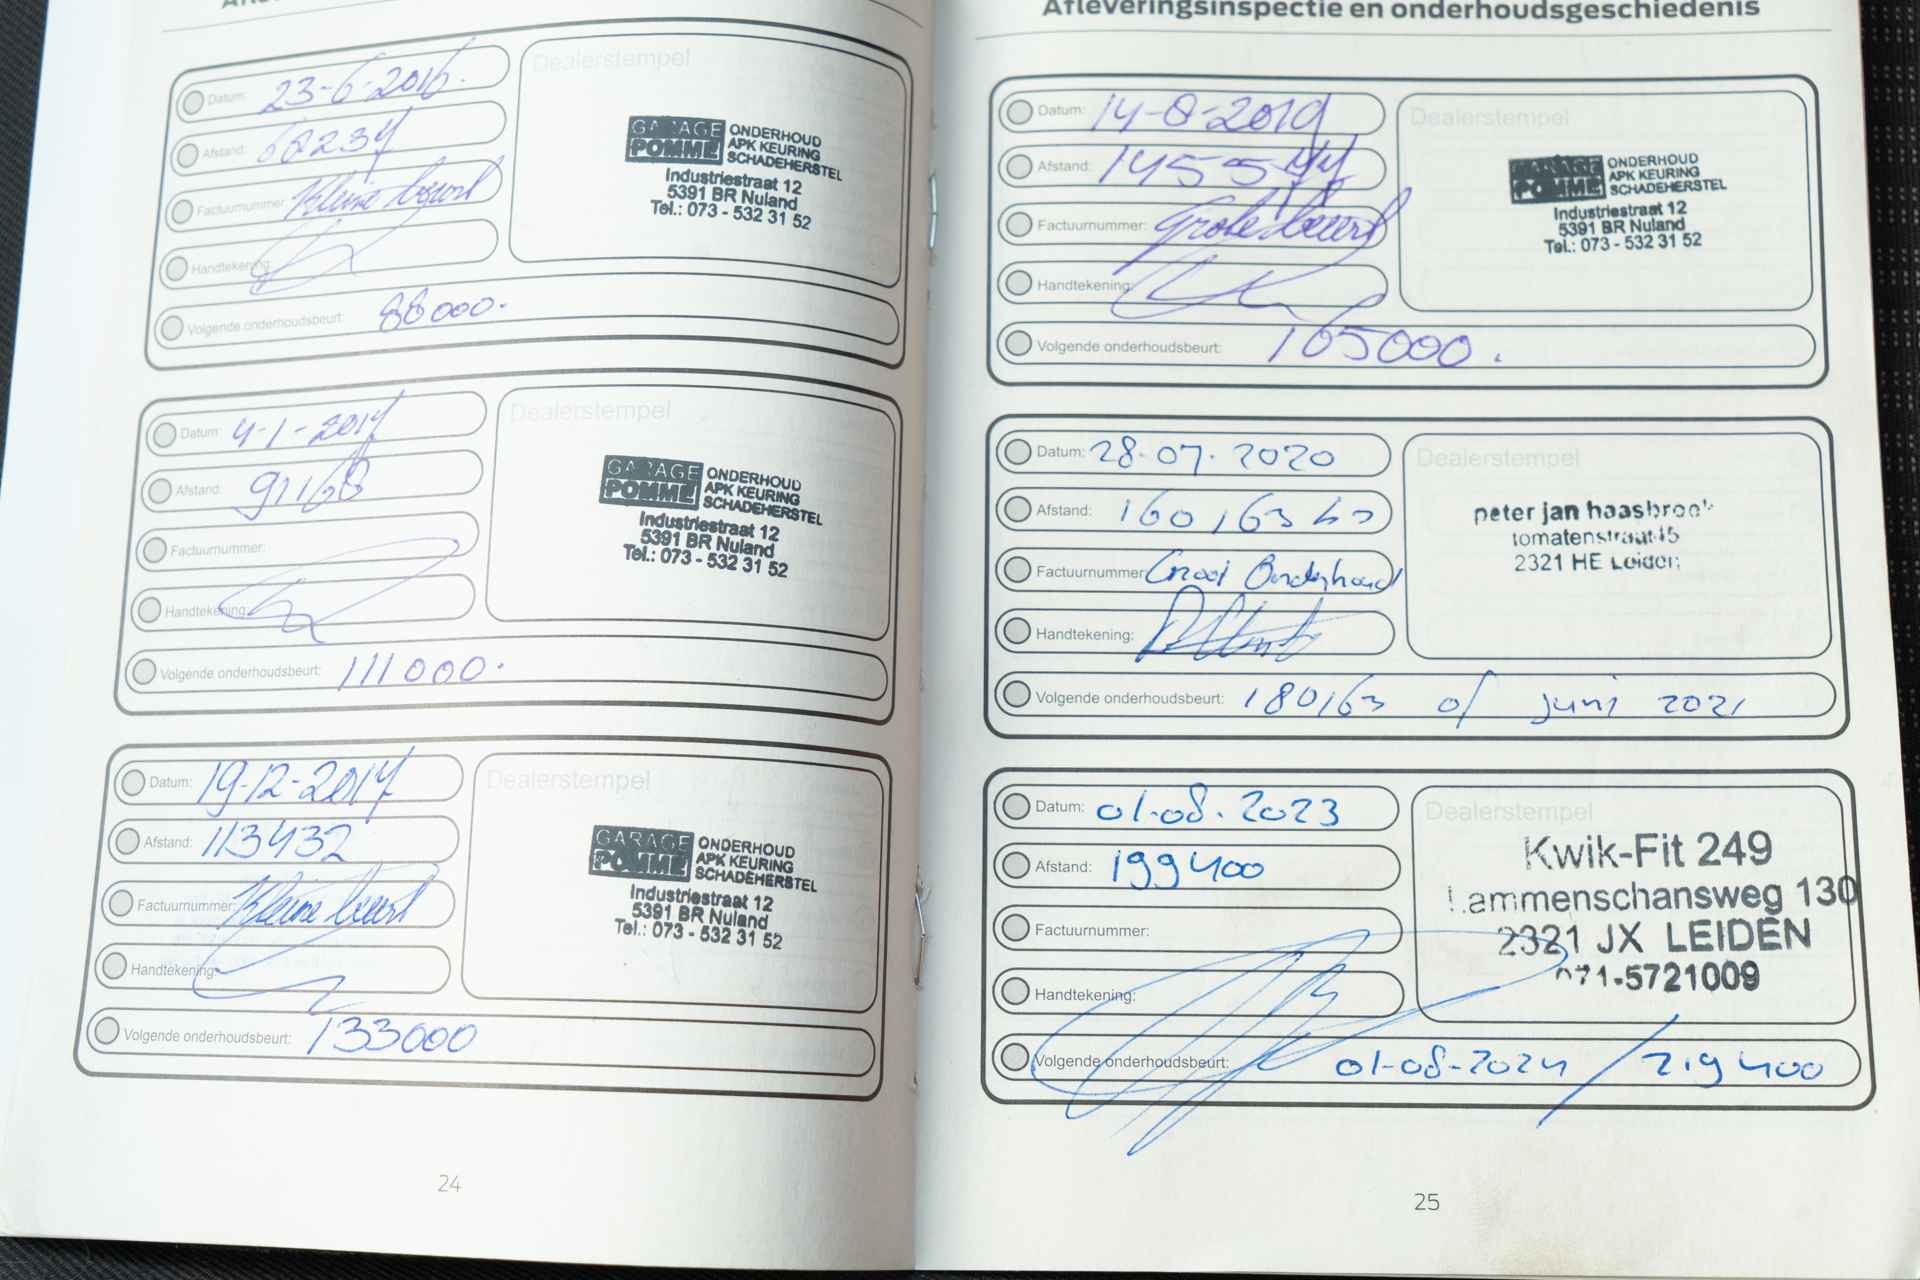 Afleveringsinspectie en onderhoudsgeschiedenis
Datum: 23-6-2016.
Afstand: 68234
Factuurnummer: Kleine beurt
Handtekening:
Volgende onderhoudsbeurt: 88000.
Dealerstempel
GARAGE POMME
ONDERHOUD
APK KEURING
SCHADEHERSTEL
Industriestraat 12
5391 BR Nuland
Tel.: 073 - 532 31 52
Datum: 4-1-2017
Afstand: 91168
Factuurnummer:
Handtekening:
Volgende onderhoudsbeurt: 111000.
Dealerstempel
GARAGE POMME
ONDERHOUD
APK KEURING
SCHADEHERSTEL
Industriestraat 12
5391 BR Nuland
Tel.: 073 - 532 31 52
Datum: 19-12-2017
Afstand: 113432
Factuurnummer: Kleine beurt
Handtekening:
Volgende onderhoudsbeurt: 133000
Dealerstempel
GARAGE POMME
ONDERHOUD
APK KEURING
SCHADEHERSTEL
Industriestraat 12
5391 BR Nuland
Tel.: 073 - 532 31 52
24
Datum: 14-8-2019
Afstand: 145544
Factuurnummer: Grote beurt
Handtekening:
Volgende onderhoudsbeurt: 165000.
Dealerstempel
GARAGE POMME
ONDERHOUD
APK KEURING
SCHADEHERSTEL
Industriestraat 12
5391 BR Nuland
Tel.: 073 - 532 31 52
Datum: 28-07-2020
Afstand: 160163
Factuurnummer: Groot Onderhoud
Handtekening:
Volgende onderhoudsbeurt: 180163 of juni 2021
Dealerstempel
peter jan haasbroek
tomatenstraat 15
2321 HE Leiden
Datum: 01-08-2023
Afstand: 199400
Factuurnummer:
Handtekening:
Volgende onderhoudsbeurt: 01-08-2024 / 219400
Dealerstempel
Kwik-Fit 249
Lammenschansweg 130
2321 JX LEIDEN
071-5721009
25